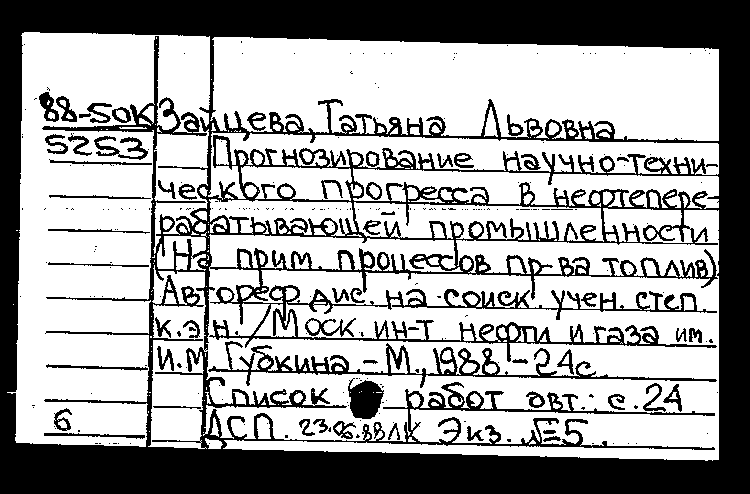 88-50К Зайцева, Татьяна Львовна.
5253 Прогнозирование научно-техни-
ческого прогресса в нефтепере-
рабатывающей промышленности
(На прим. процессов пр-ва топлив)
Автореф дис. на соиск. учен. степ.
к.э.н. / Моск. ин-т нефти и газа им.
И.М. Губкина. - М., 1988. - 24с.
Список работ авт.: с. 24
6 ДСП. 23.06.88ЛК Экз. №5.